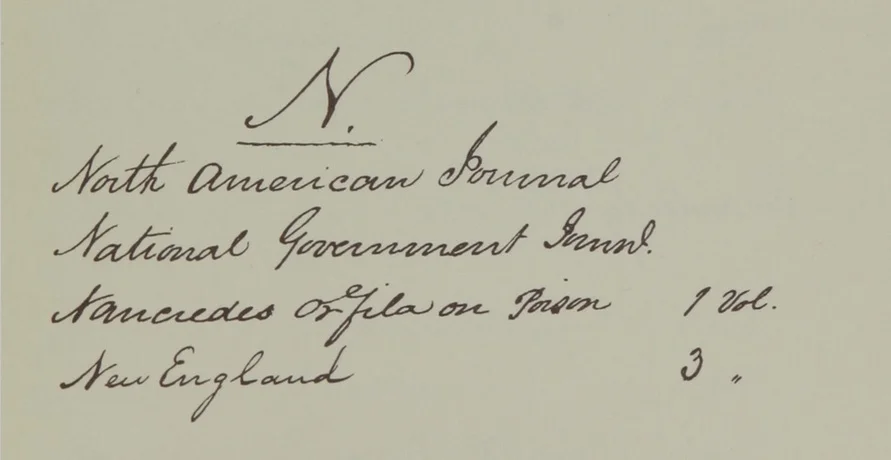 N.
North American Journal
National Government Journl.
Nancredes Orfila on Poison 1 Vol.
New England 3 „